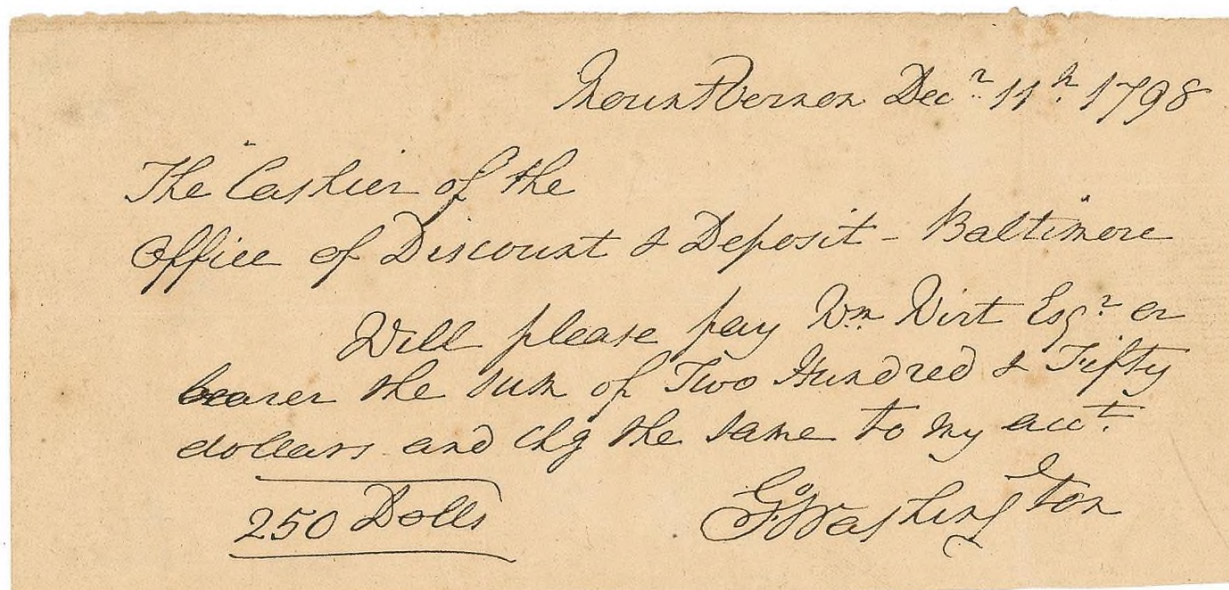 Mount Vernon Decr 11h 1798
The Cashier of the
Office of Discount & Deposit - Baltimore
Will please pay Wm Wirt Esqr or
bearer the sum of Two Hundred & Fifty
dollars and chg the same to my acct.
250 Dolls
G Washington